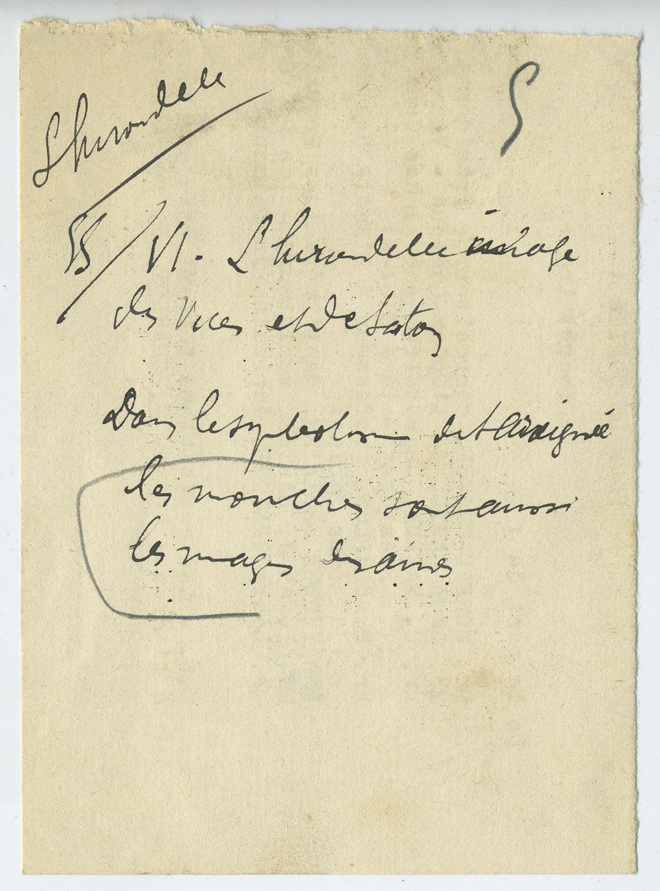 L'hirondelle
§ VI. L'hirondelle image
des vices et de Satan
Dans le symbolisme de l'araignée
les mouches sont aussi
les images des âmes